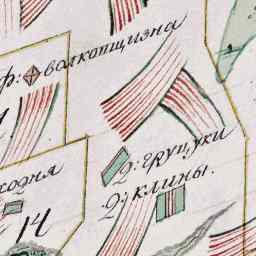 ф: волкопщизна
2: груцуки
2: клины.
ходня
14